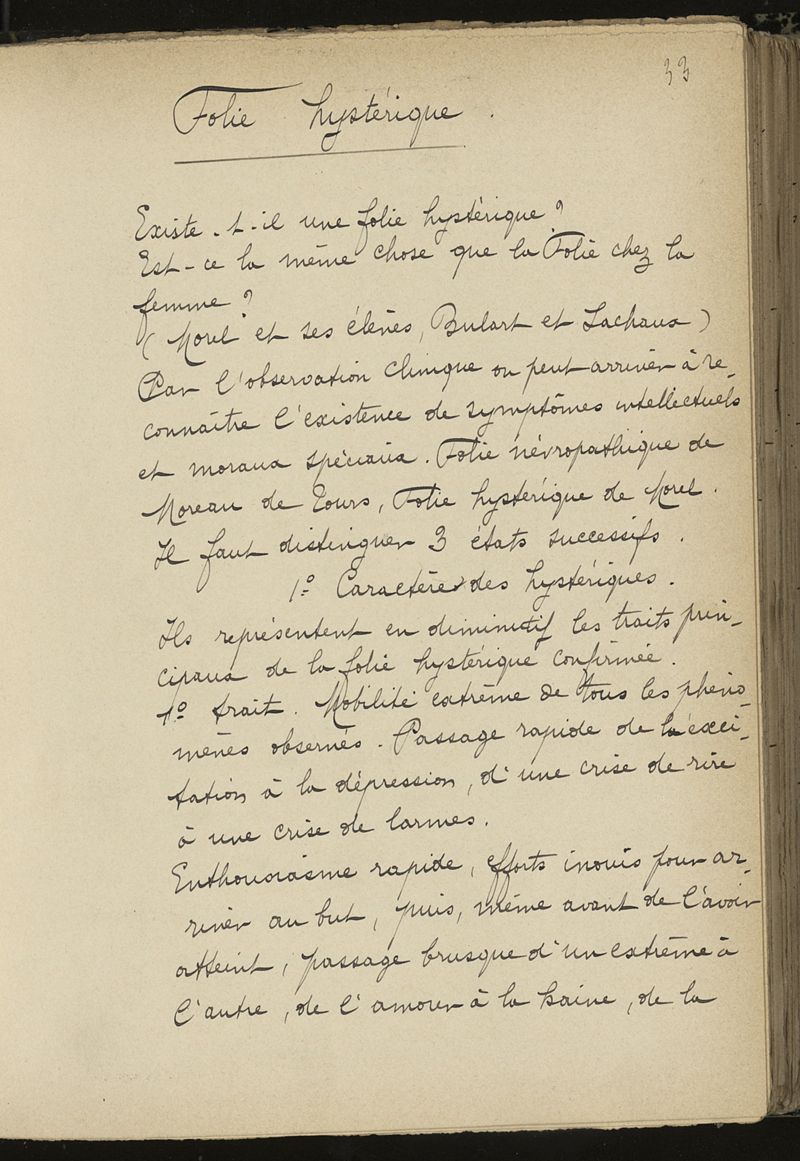 33
Folie hystérique.
Existe-t-il une folie hystérique ?
Est-ce la même chose que la Folie chez la
femme ?
(Morel et ses élèves, Bulart et Lachaux)
Par l'observation clinique on peut arriver à re-
connaître l'existence de symptômes intellectuels
et moraux spéciaux. Folie névropathique de
Moreau de Tours, Folie hystérique de Morel.
Il faut distinguer 3 états successifs.
1º Caractère des hystériques.
Ils représentent en diminutif les traits prin-
cipaux de la folie hystérique confirmée.
1º trait. Mobilité extrême de tous les phéno-
mènes observés. Passage rapide de l'exci-
tation à la dépression, d'une crise de rire
à une crise de larmes.
Enthousiasme rapide, efforts inouis pour ar-
river au but, puis, même avant de l'avoir
atteint, passage brusque d'un extrême à
l'autre, de l'amour à la haine, de la